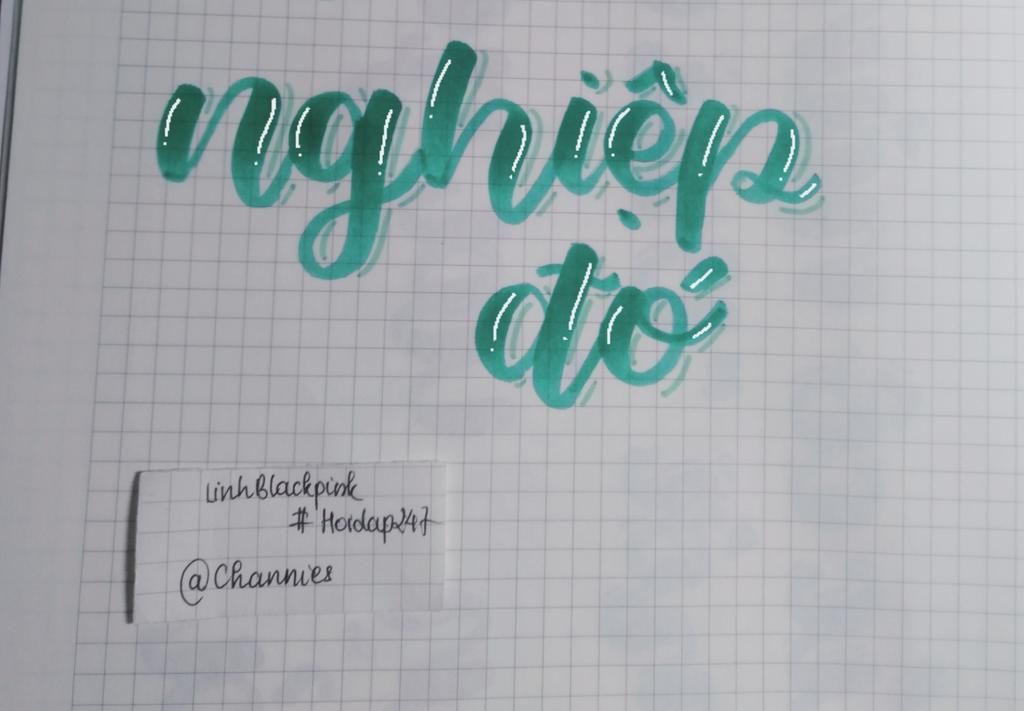 nghiệp
đó
LinhBlackpink
# Hoidap247
@Channies